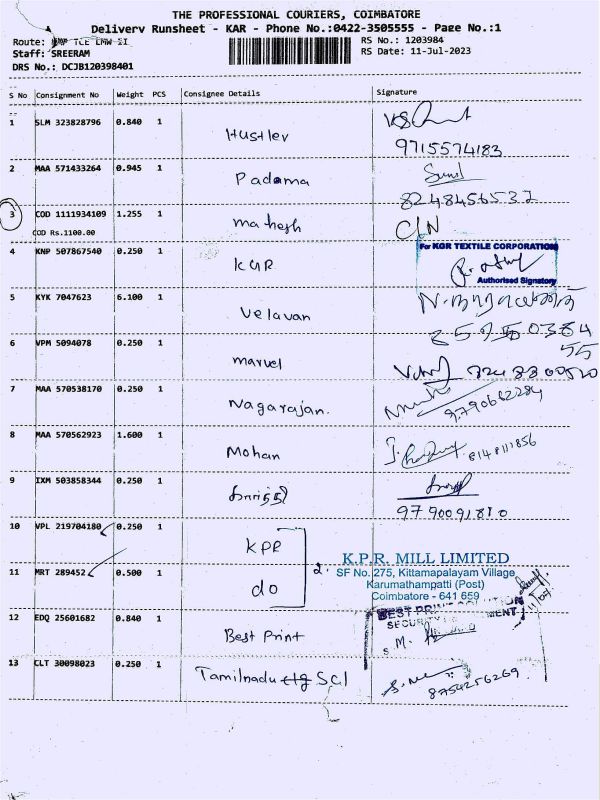 THE PROFESSIONAL COURIERS, COIMBATORE
Delivery Runsheet - KAR - Phone No.:0422-3505555 - Page No.:1
Route: TCE LMW SI
RS No.: 1203984
Staff: SREERAM
RS Date: 11-Jul-2023
DRS No.: DCJB120398401
S No Consignment No Weight PCS Consignee Details Signature
1 SLM 323828796 0.840 1 Hustlev
9715574183
2 MAA 571433264 0.945 1 Padama Sunil
8248456532
3 COD 1111934109 1.255 1 mahesh C/N
COD Rs.1100.00
4 KNP 507867540 0.250 1 KGR
For KGR TEXTILE CORPORATION
Authorised Signatory
5 KYK 7047623 6.100 1 Velavan
6 VPM 5094078 0.250 1 marvel
7 MAA 570538170 0.250 1 Nagarajan.
9790662284
8 MAA 570562923 1.600 1 Mohan
8148111856
9 IXM 503858344 0.250 1
9790091810
10 VPL 219704180 0.250 1 KPR
11 MRT 289452 0.500 1 do
2. K.P.R. MILL LIMITED
SF No. 275, Kittamapalayam Village
Karumathampatti (Post)
Coimbatore - 641 659
12 EDQ 25601682 0.840 1 Best Print
BEST PRINT SOLUTION
13 CLT 30098023 0.250 1 Tamilnadu ctg SCI
8754256269